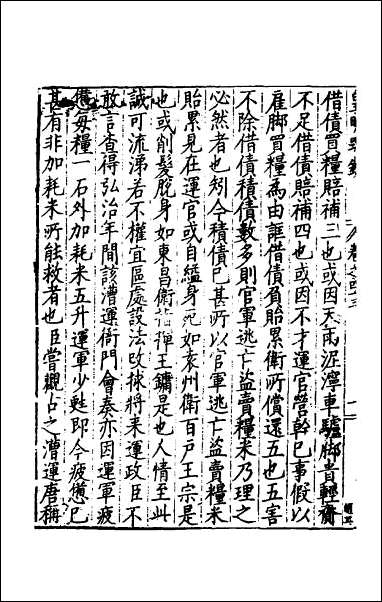 借債買糧賠補三也或因天雨泥濘車驢脚貴輕齎
不足借債賠補四也或因不才運官營幹已事假以
雇脚買糧為由誆借債負貽累衛所償還五也五害
不除借債積債數多則官軍逃亡盜賣糧米乃理之
必然者也矧今積債已甚所以官軍逃亡盜賣糧米
貽累見在運官或自縊身死如袁州衛百戶王宗是
也或削髮脫身如東昌衛指揮王鏽是也人情至此
誠可流涕若不權宜區處設法改捄將來運政臣不
敢言查得弘治年間該漕運衙門會奏亦因運軍疲
憊每糧一石外加耗米五升運軍少甦即今疲憊已
甚有非加耗米所能救者也臣嘗觀占之漕運唐稱